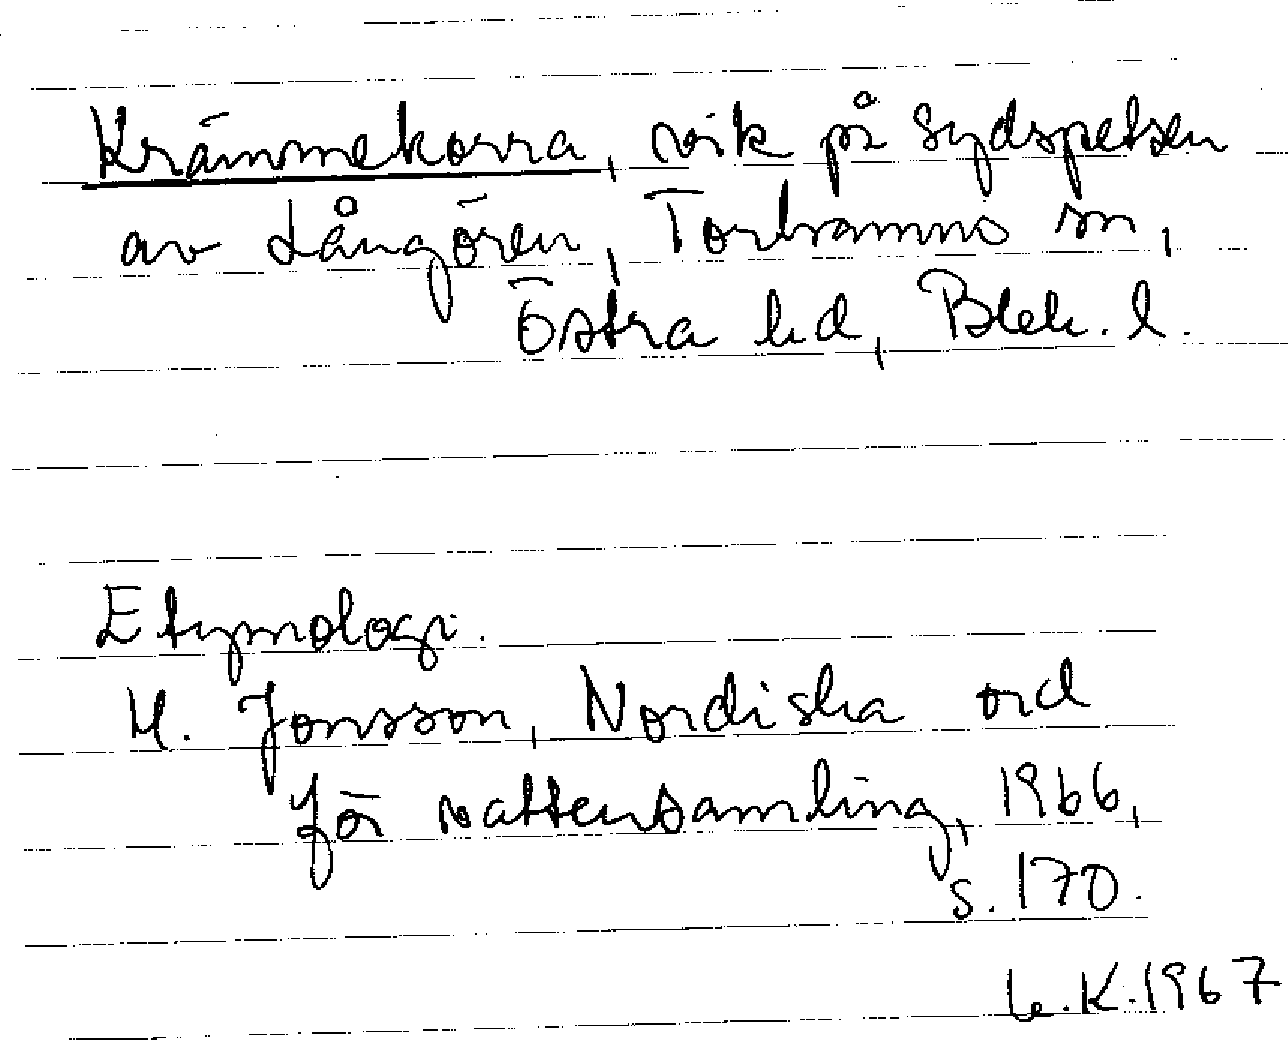 Krämmekorra, vik på sydspetsen
av Långören, Torhamns sn,
Östra hd, Blek. l.
Etymologi.
H. Jonsson, Nordiska ord
för vattensamling, 1966,
s. 170.
K. 1967